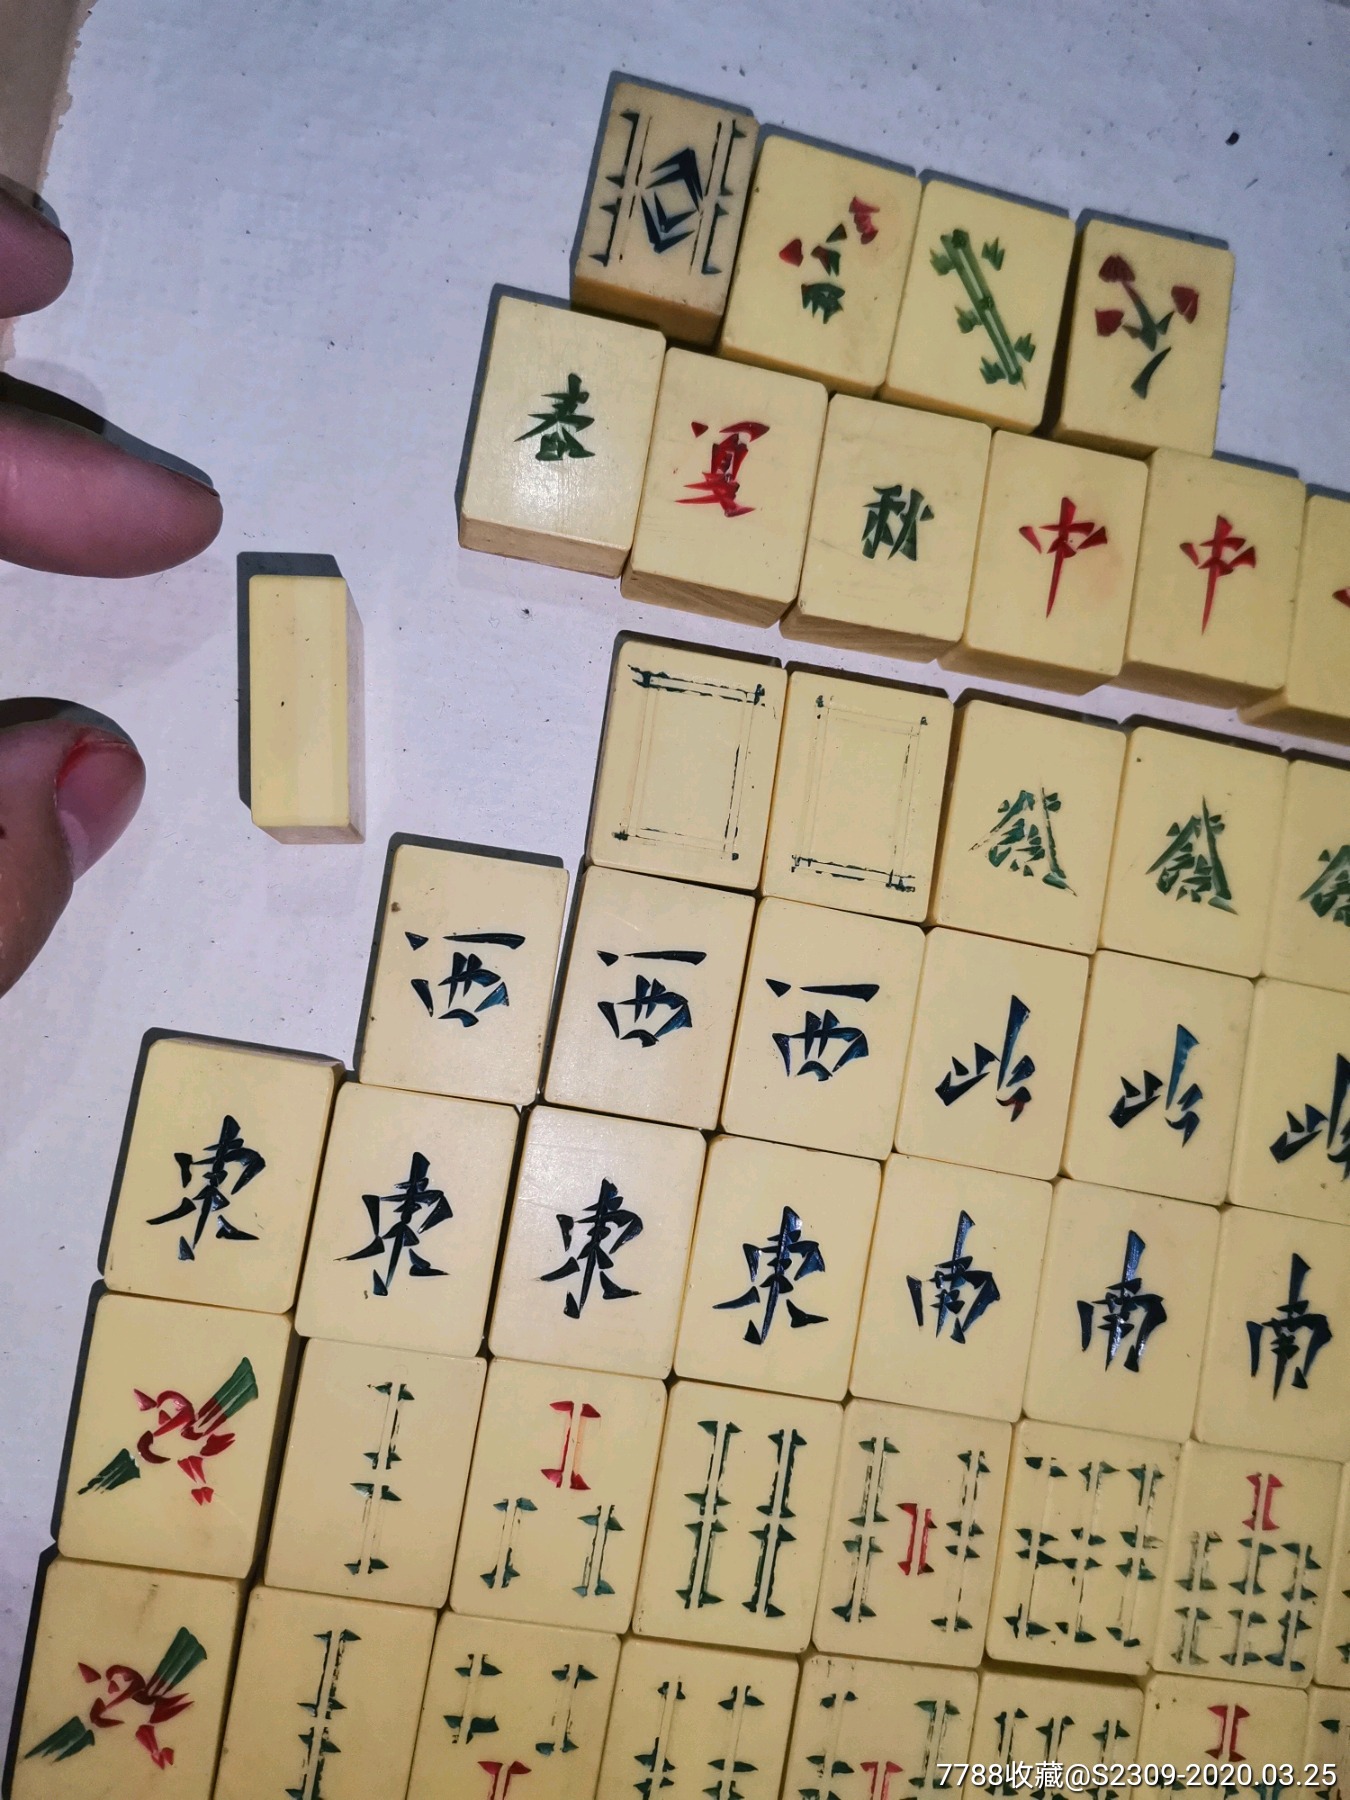 春 夏 秋 中 中
發 發 發
西 西 西 北 北 北
東 東 東 東 南 南 南
7788收藏@S2309-2020.03.25